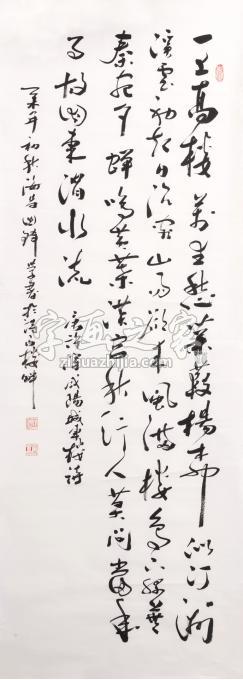 一上高楼萬里愁蒹葭楊柳似汀洲
溪雲初起日沉閣山雨欲来風滿樓鳥下緑蕪
秦苑夕蟬鳴黄葉漢宫秋行人莫問當年
事故國東来渭水流
唐許渾咸陽城東楼詩
初秋
字画之家
zihuazhijia.com